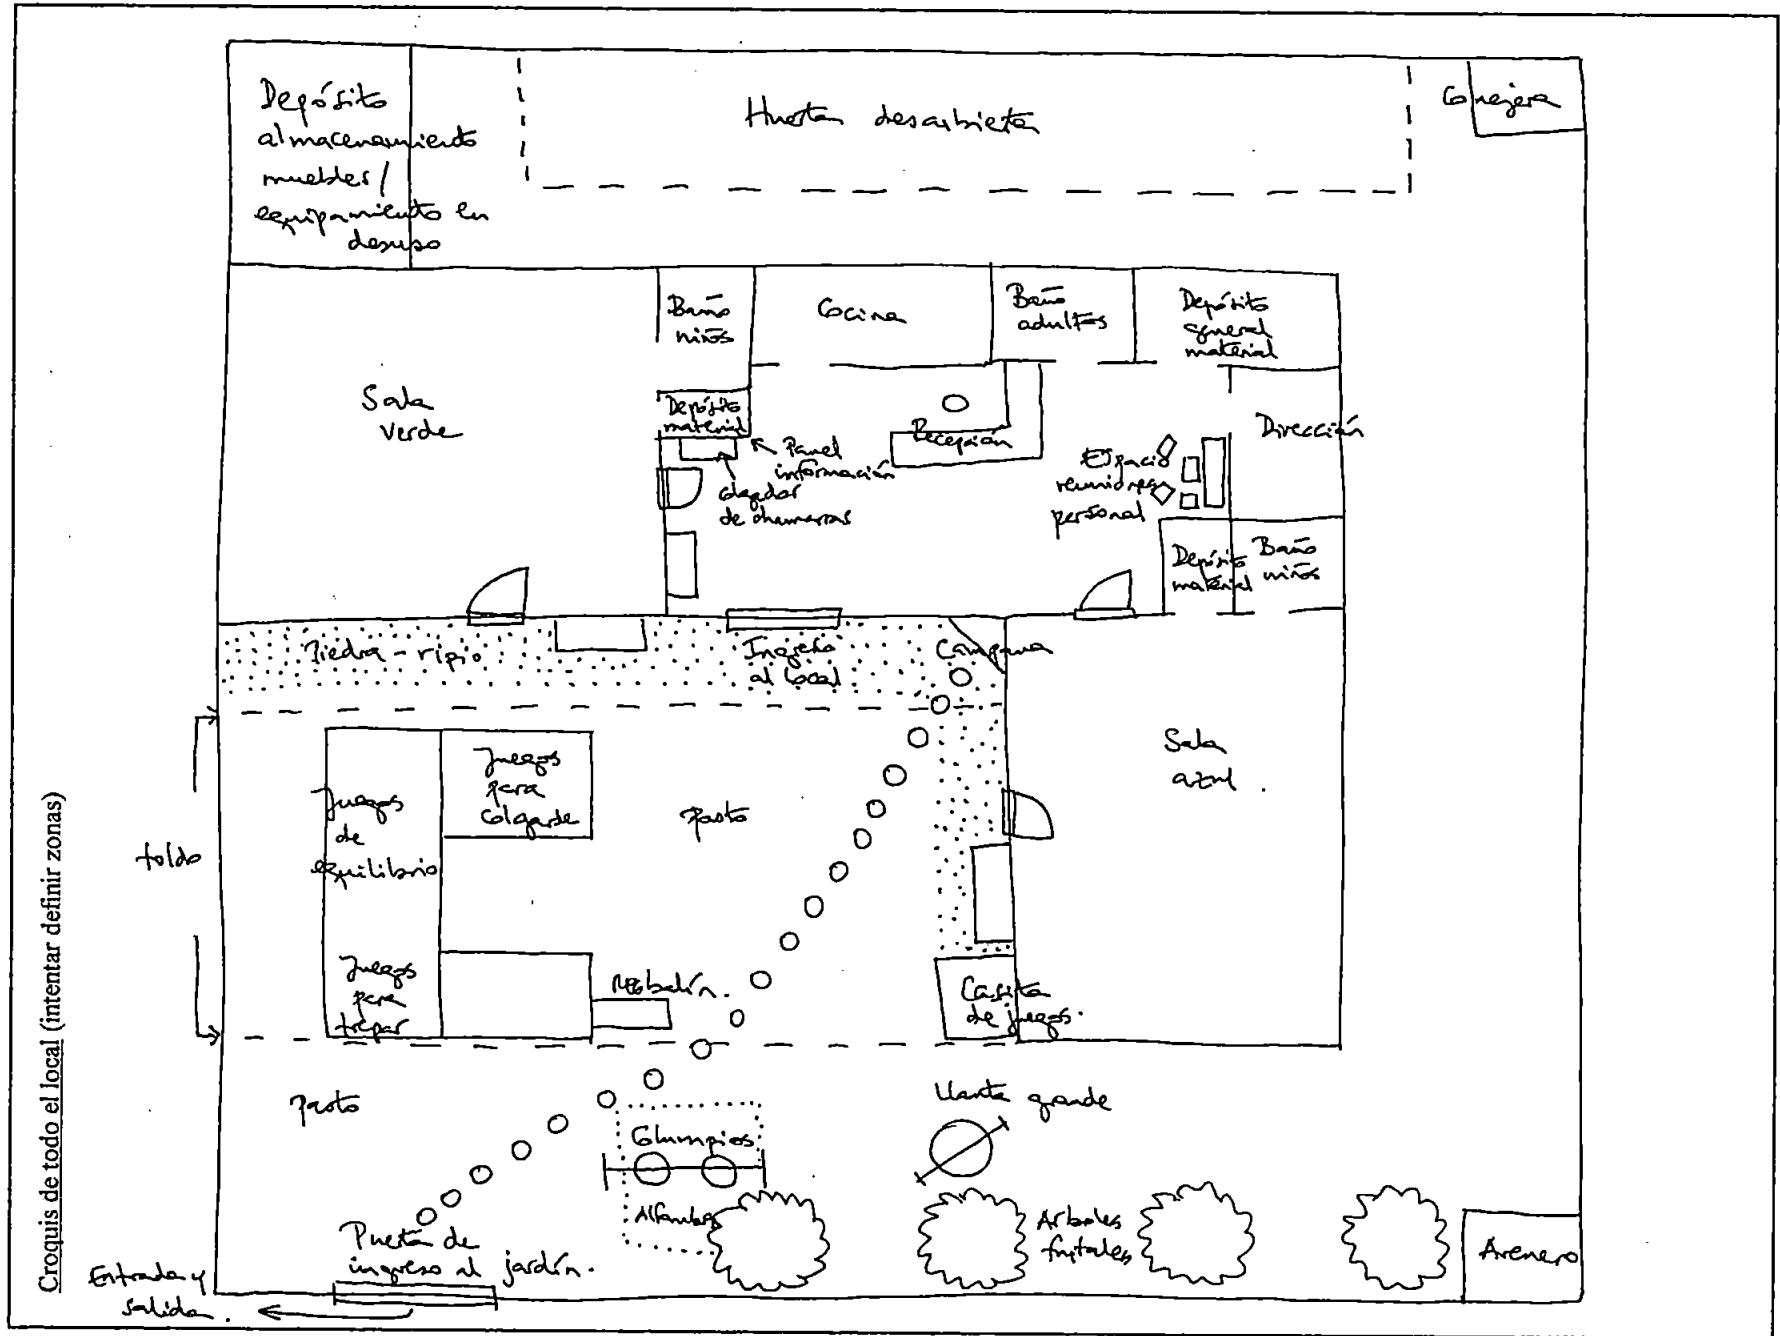 Croquis de todo el local (intentar definir zonas)
Depósito
almacenamiento
muebles /
equipamiento en
desuso
Huerta
Conejera
Baño
niños
Cocina
Baño
adultos
Depósito
general
material
Sala
verde
Depósito
material
Panel
información
Colgador
de chamarras
Recepción
Espacio
reuniones
personal
Dirección
Depósito
material
Baño
niños
Piedra - ripio
Ingreso
al local
Campana
Juegos
de
equilibrio
Juegos
para
colgarse
pasto
Sala
azul.
toldo
Juegos
para
trepar
Resbalín.
Casita
de juegos.
pasto
Columpios
Alfombra
Llanta grande
Arboles
frutales
Arenero
Puerta de
ingreso al jardín.
Entrada y
salida.